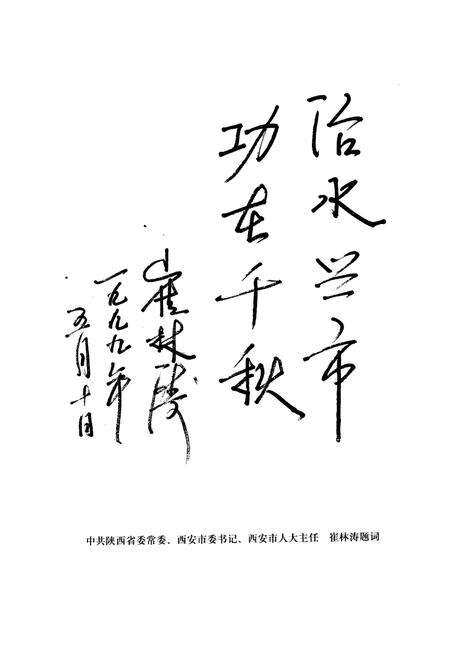 治水兴市
功在千秋
崔林涛
一九九九年
五月十日
中共陕西省委常委、西安市委书记、西安市人大主任 崔林涛题词